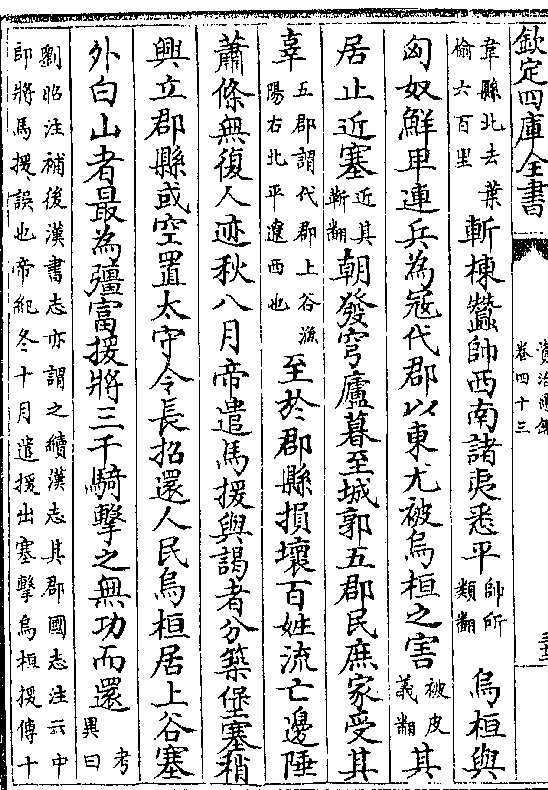 欽定四庫全書
資治通鑑
卷四十三
韋縣北去葉
榆六百里
斬棟蠶帥西南諸夷悉平
帥所
類翻
烏桓與
匈奴鮮卑連兵為寇代郡以東尤被烏桓之害
被皮
義翻
其
居止近塞
近其
靳翻
朝發穹廬暮至城郭五郡民庶家受其
辜
五郡謂代郡上谷漁
陽右北平遼西也
至於郡縣損壞百姓流亡邊陲
蕭條無復人迹秋八月帝遣馬援與謁者分築堡塞稍
興立郡縣或空置太守令長招還人民烏桓居上谷塞
外白山者最為彊富援將三千騎擊之無功而還
考
異曰
劉昭注補後漢書志亦謂之續漢志其郡國志注云中
郎將馬援誤也帝紀冬十月遣援出塞擊烏桓援傳十